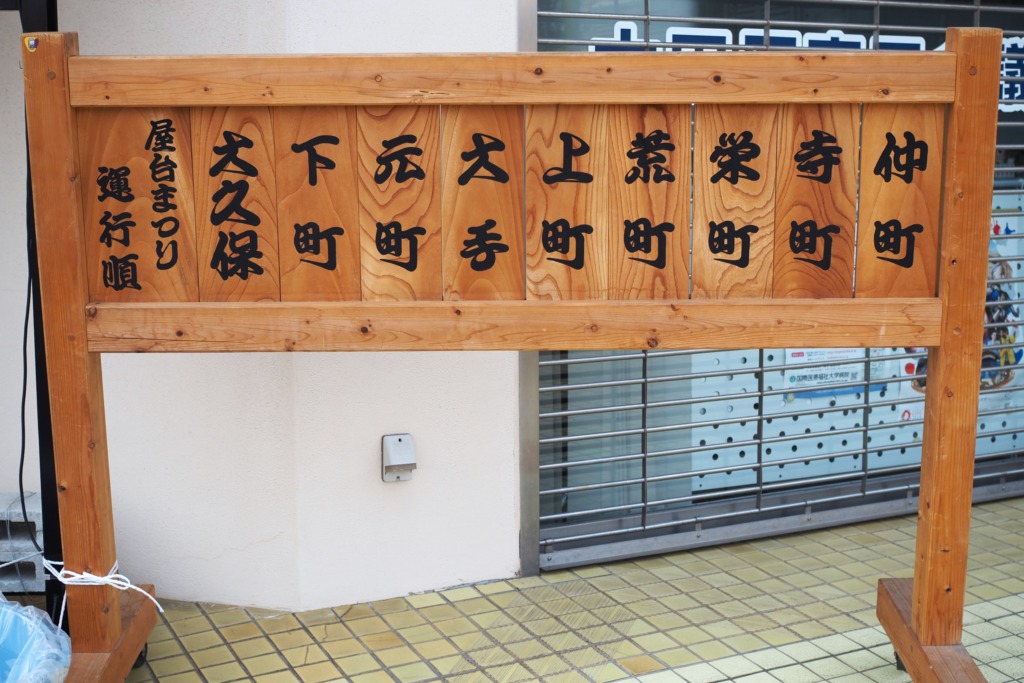 仲町
寺町
栄町
荒町
上町
大手
元町
下町
大久保
屋台まつり
運行順
国際医療福祉大学病院